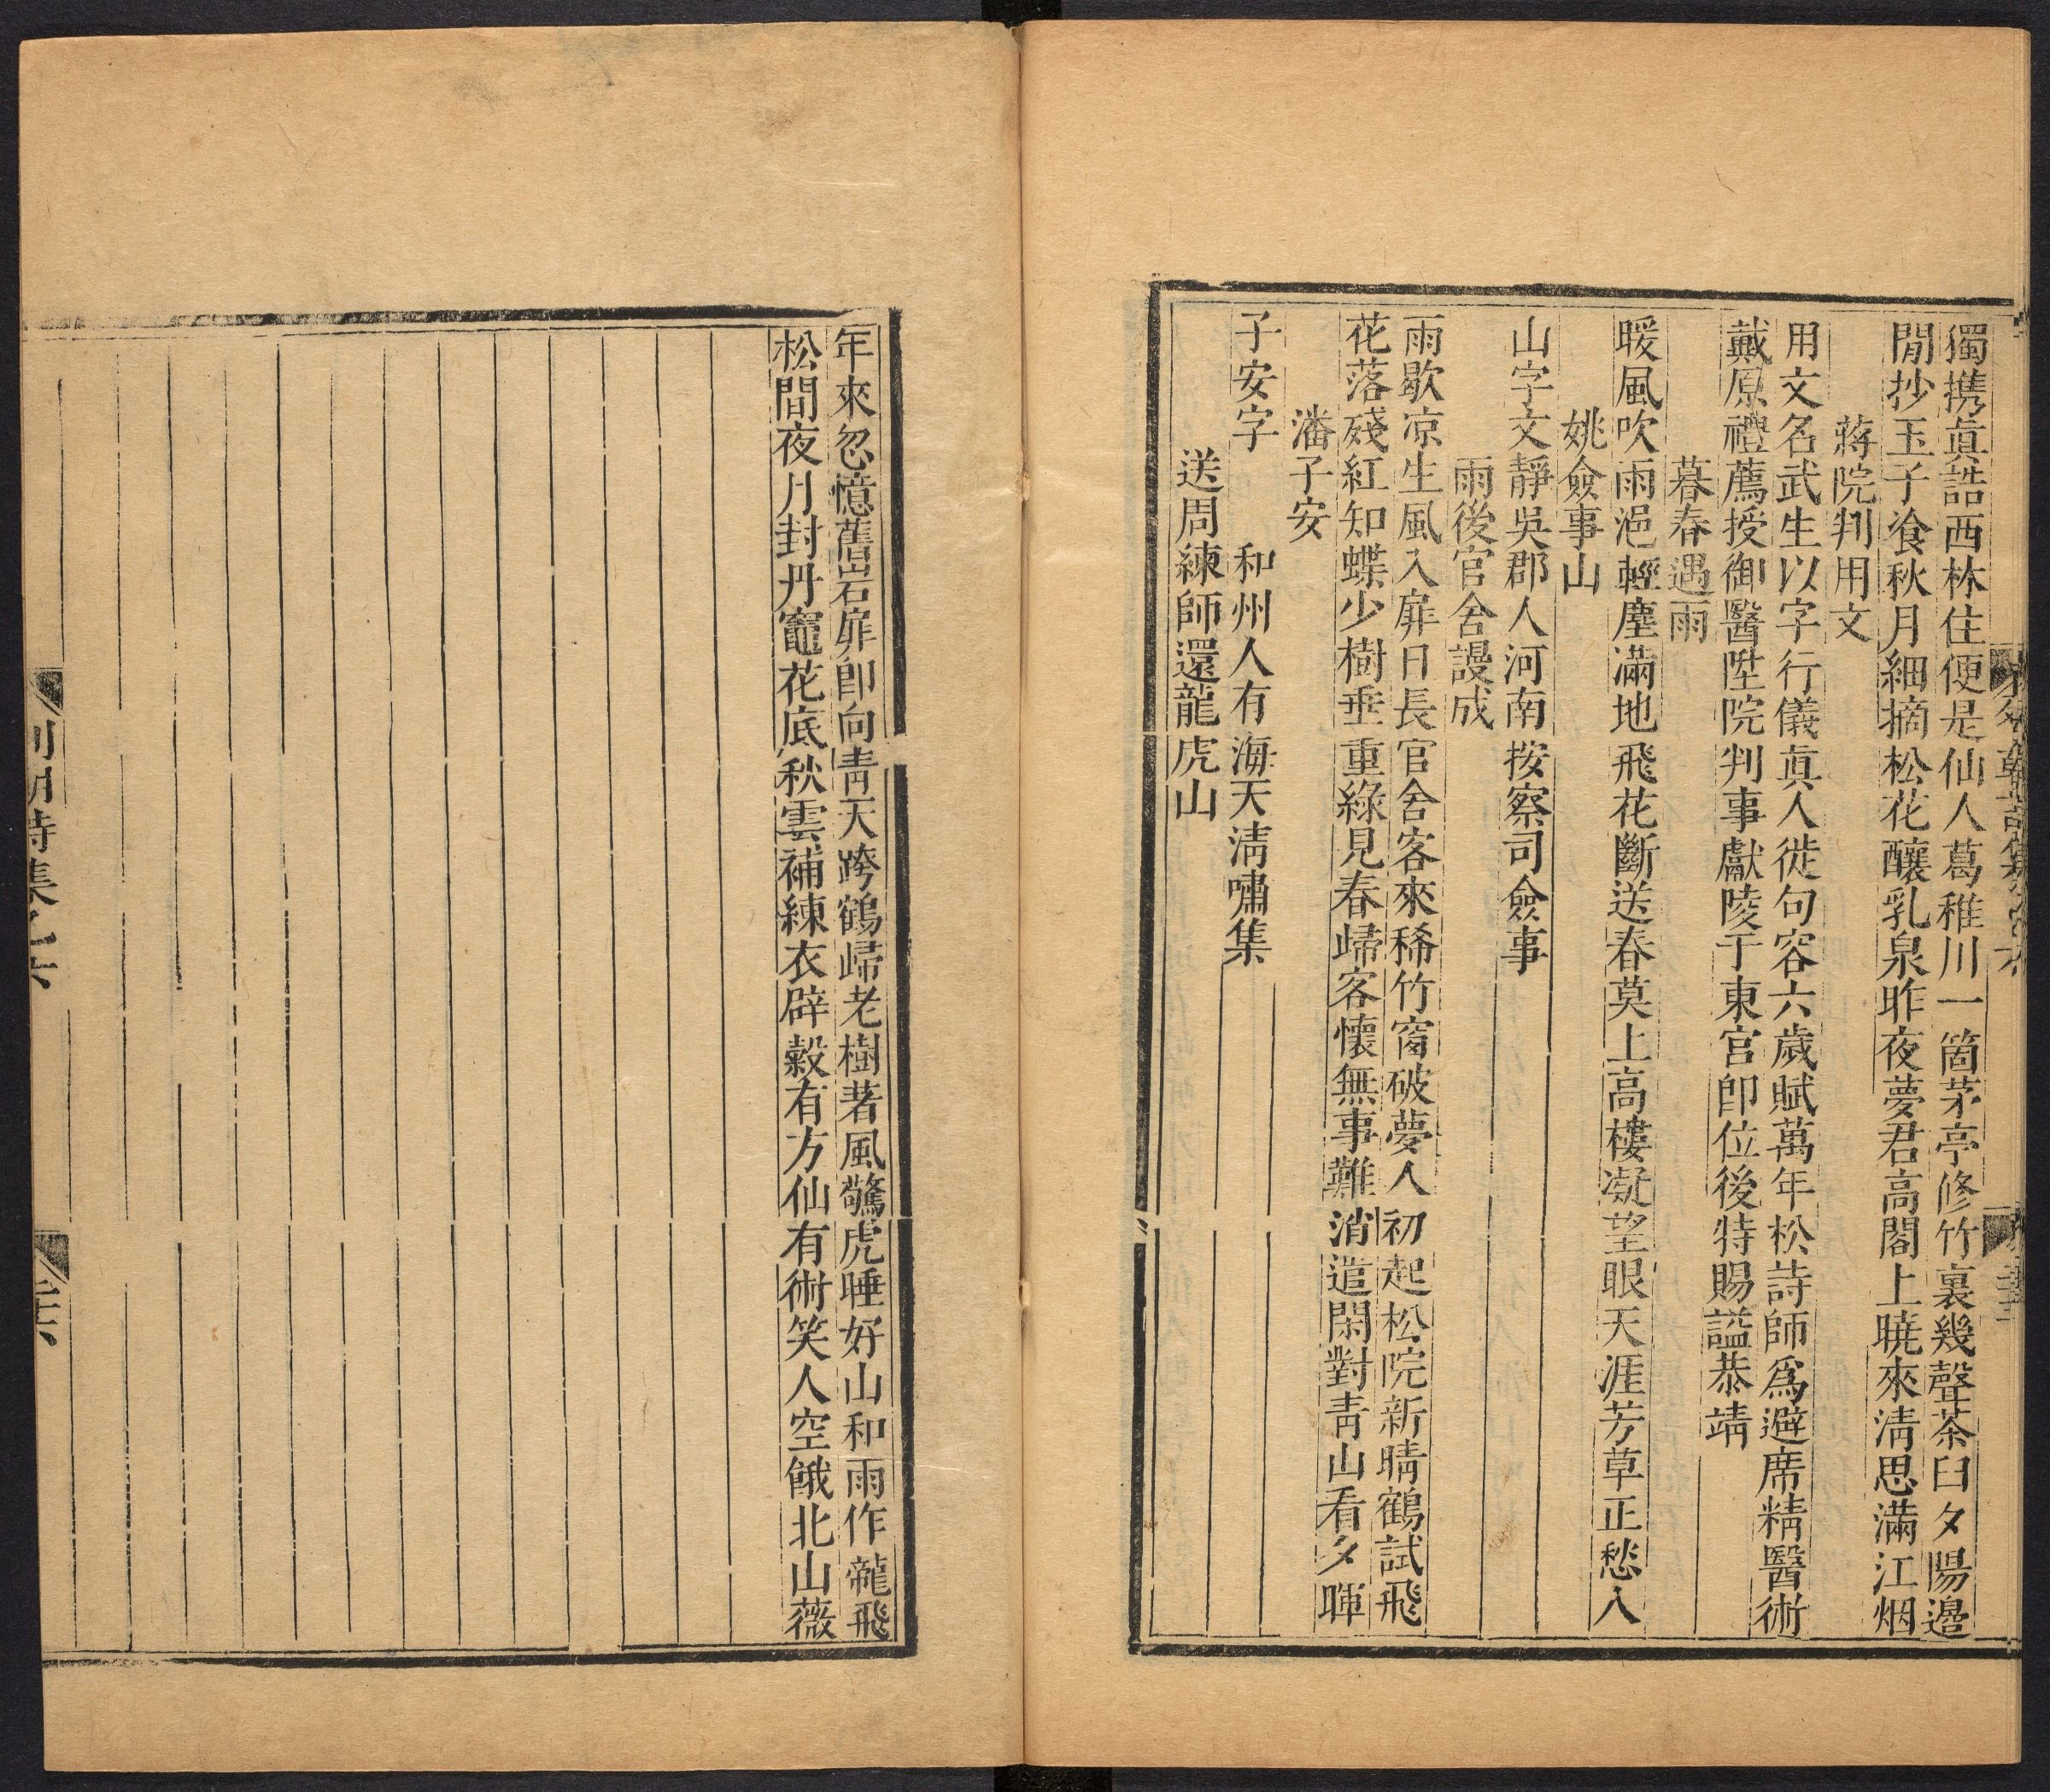 獨携眞誥西林住便是仙人葛稚川一箇茅亭修竹裏幾聲茶臼夕陽邉
閒抄玉子湌秋月細摘松花釀乳泉昨夜夢君高閣上曉來淸思滿江烟
蔣院判用文
用文名武生以字行儀眞人徙句容六歲賦萬年松詩師爲避席精醫術
戴原禮薦授御醫陞院判事獻陵于東宮卽位後特賜謚恭靖
暮春遇雨
暖風吹雨浥輕塵滿地飛花斷送春莫上高樓凝望眼天涯芳草正愁人
姚僉事山
山字文靜吳郡人河南按察司僉事
雨後官舍謾成
雨歇凉生風入扉日長官舍客來稀竹窗破夢人初起松院新晴鶴試飛
花落殘紅知蝶少樹垂重綠見春歸客懷無事難消遣閑對靑山看夕暉
潘子安
子安字　和州人有海天淸嘯集
送周練師還龍虎山
年來忽憶舊岩扉卽向靑天跨鶴歸老樹著風驚虎睡好山和雨作龍飛
松間夜月封丹竈花底秋雲補練衣辟穀有方仙有術笑人空餓北山薇
列朝詩集乙六